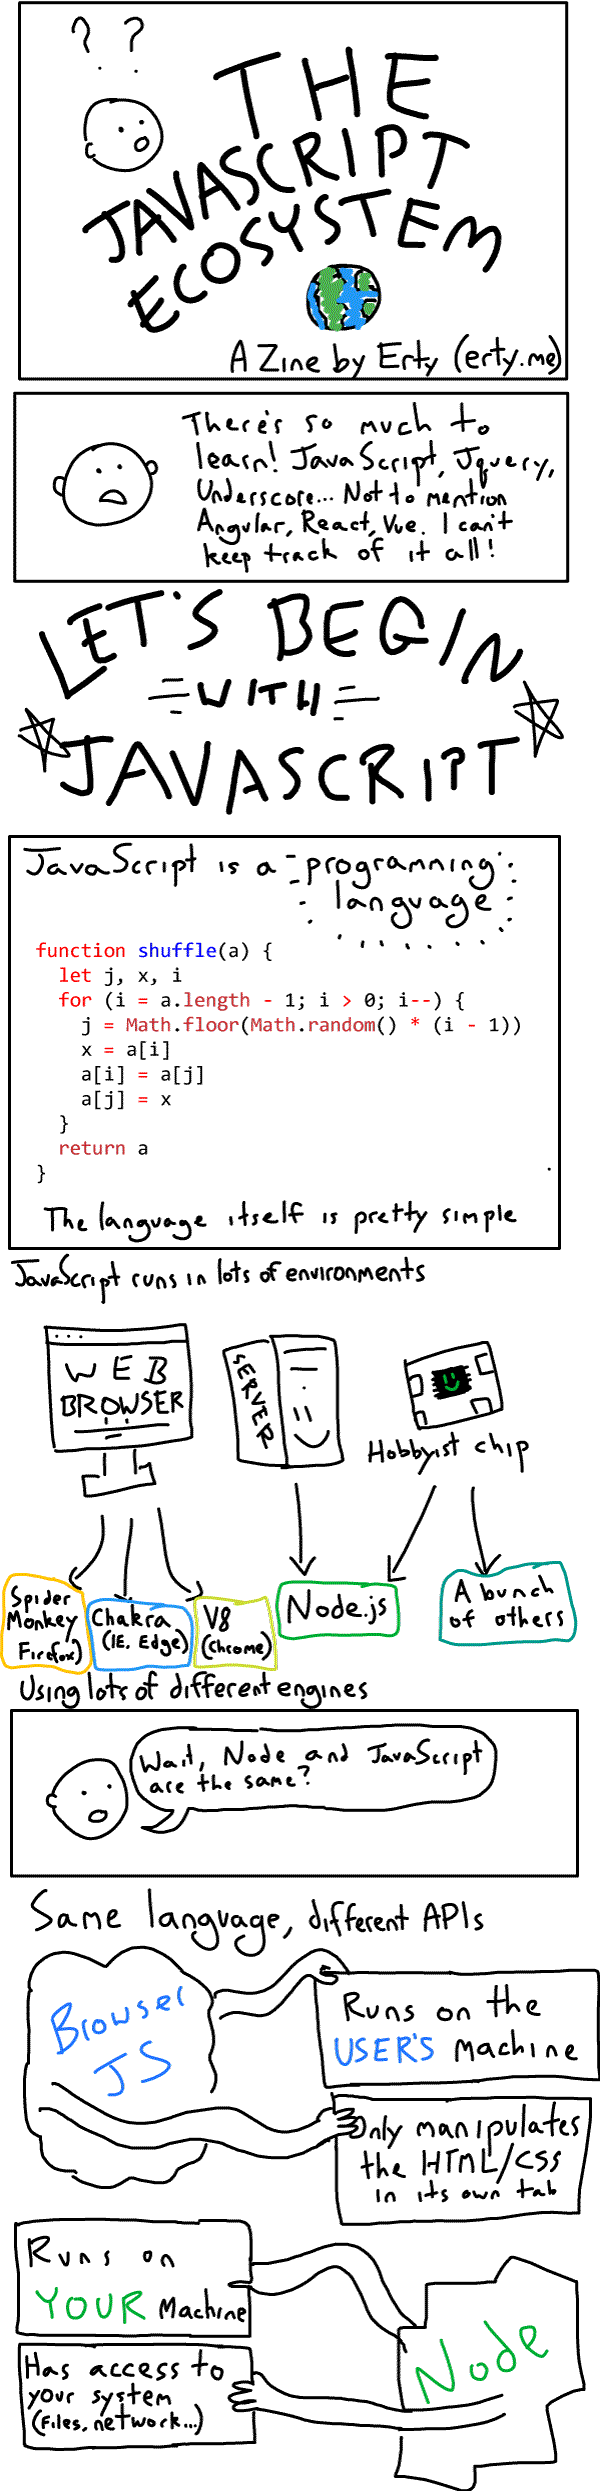 ? ?
THE
JAVASCRIPT
ECOSYSTEM
A Zine by Erty (erty.me)
There's so much to
learn! JavaScript, Jquery,
Underscore... Not to mention
Angular, React, Vue. I can't
keep track of it all!
LET'S BEGIN
WITH
JAVASCRIPT
JavaScript is a programming
language
function shuffle(a) {
  let j, x, i
  for (i = a.length - 1; i > 0; i--) {
    j = Math.floor(Math.random() * (i - 1))
    x = a[i]
    a[i] = a[j]
    a[j] = x
  }
  return a
}
The language itself is pretty simple
JavaScript runs in lots of environments
WEB
BROWSER
SERVER
Hobbyist chip
Spider
Monkey
Firefox)
Chakra
(IE, Edge)
V8
(Chrome)
Node.js
A bunch
of others
Using lots of different engines
Wait, Node and JavaScript
are the same?
Same language, different APIs
Browser
JS
Runs on the
USER'S machine
Only manipulates
the HTML/CSS
in its own tab
Runs on
YOUR Machine
Has access to
your system
(Files, network...)
Node